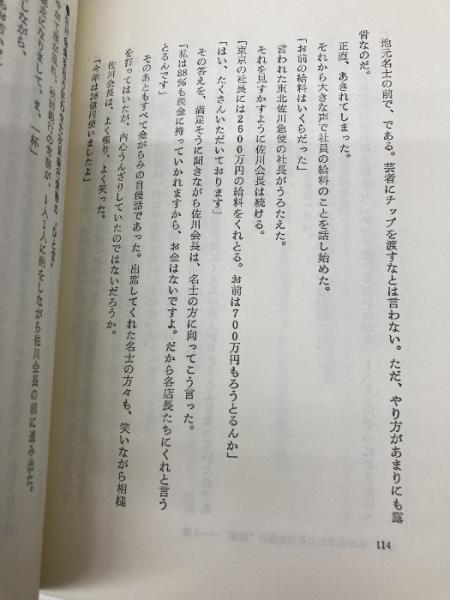 地元名士の前で、である。芸者にチップを渡すなとは言わない。ただ、やり方があまりにも露
骨なのだ。
正直、あきれてしまった。
それから大きな声で社員の給料のことを話し始めた。
「お前の給料はいくらだった」
言われた東北佐川急便の社長がうろたえた。
それを見すかすように佐川会長は続ける。
「東京の社長には2600万円の給料をくれとる。お前は700万円もろうとるんか」
「はい、たくさんいただいております」
その答えを、満足そうに聞きながら佐川会長は、名士の方に向ってこう言った。
「私は88％も税金に持っていかれますから、お金はないですよ。だから各店長たちにくれと言う
とるんです」
そのあともすべて金がらみの自慢話であった。出席してくれた名士の方々も、笑いながら相槌
を打ってはいたが、内心うんざりしていたのではないだろうか。
佐川会長は、よく喋り、よく笑った。
「今年は28億円使いましたよ」
1人1人に酌をしながら佐川会長の前に進み出た。
になりまして、ま、一杯」
しながら、
114